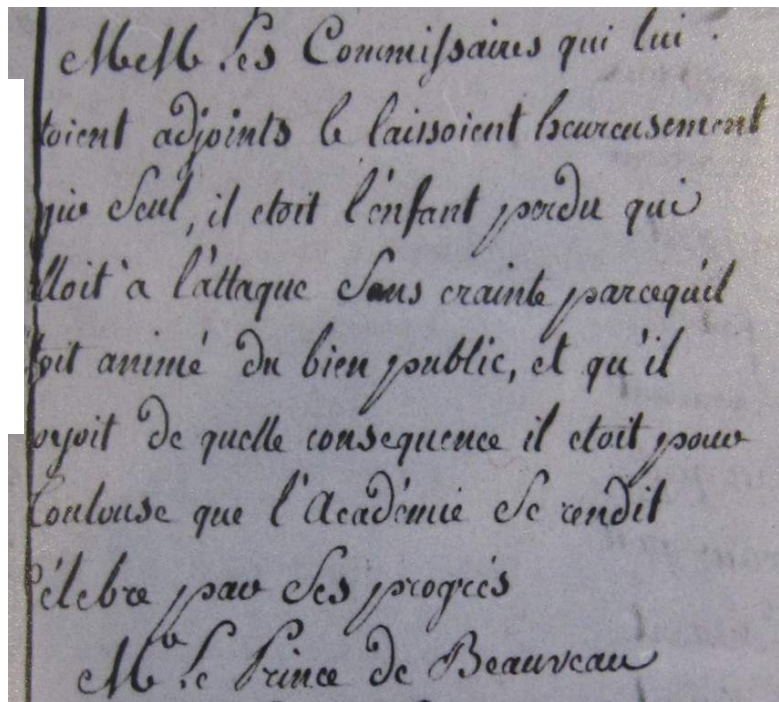 MM. Les Commissaires qui lui
toient adjoints le laissoient heureusement
gir Seul, il etoit l'énfant perdu qui
lloit à l'áttaque Sans crainte parcequ'il
toit animé du bien public, et qu'il
oyoit de quelle consequence il etoit pour
Toulouse que l'Académie Se rendit
Célebre par Ses progrès
Mr. le Prince de Beauveau